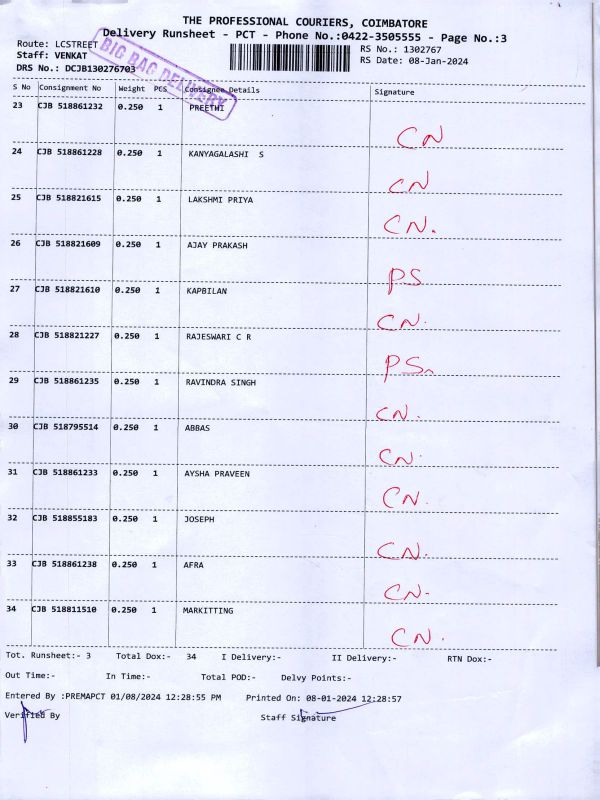 THE PROFESSIONAL COURIERS, COIMBATORE
Delivery Runsheet - PCT - Phone No.:0422-3505555 - Page No.:3
Route: LCSTREET
RS No.: 1302767
Staff: VENKAT
RS Date: 08-Jan-2024
DRS No.: DCJB130276703
BIG BAG DELIVERY
S No Consignment No Weight PCS Consignee Details Signature
23 CJB 518861232 0.250 1 PREETHI
CN
24 CJB 518861228 0.250 1 KANYAGALASHI S
CN
25 CJB 518821615 0.250 1 LAKSHMI PRIYA
CN.
26 CJB 518821609 0.250 1 AJAY PRAKASH
PS
27 CJB 518821610 0.250 1 KAPBILAN
CN.
28 CJB 518821227 0.250 1 RAJESWARI C R
PS.
29 CJB 518861235 0.250 1 RAVINDRA SINGH
CN.
30 CJB 518795514 0.250 1 ABBAS
CN.
31 CJB 518861233 0.250 1 AYSHA PRAVEEN
CN.
32 CJB 518855183 0.250 1 JOSEPH
CN.
33 CJB 518861238 0.250 1 AFRA
CN.
34 CJB 518811510 0.250 1 MARKITTING
CN.
Tot. Runsheet:- 3 Total Dox:- 34 I Delivery:- II Delivery:- RTN Dox:-
Out Time:- In Time:- Total POD:- Delvy Points:-
Entered By :PREMAPCT 01/08/2024 12:28:55 PM Printed On: 08-01-2024 12:28:57
Verified By Staff Signature